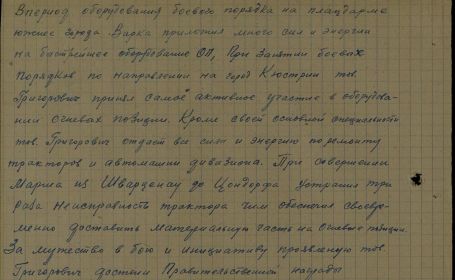 В период оборудования боевого порядка на плацдарме
южнее города Варка приложил много сил и энергии
на быстрейшее оборудование ОП, При занятии боевых
порядков по направлении на город Кюстрин тов.
Григорович принял самое активное участие в оборудова-
нии огневых позиций. Кроме своей основной специальности
тов. Григорович отдает все силы и энергию по ремонту
тракторов и автомашин дивизиона. При совершении
марша из Шварценау до Цондорфа устранил три
раза неисправность трактора чем обеспечил своевре-
менно доставить материальную часть на огневые позиции.
За мужество в бою и инициативу проявленую тов.
Григорович достоин Правительственной награды